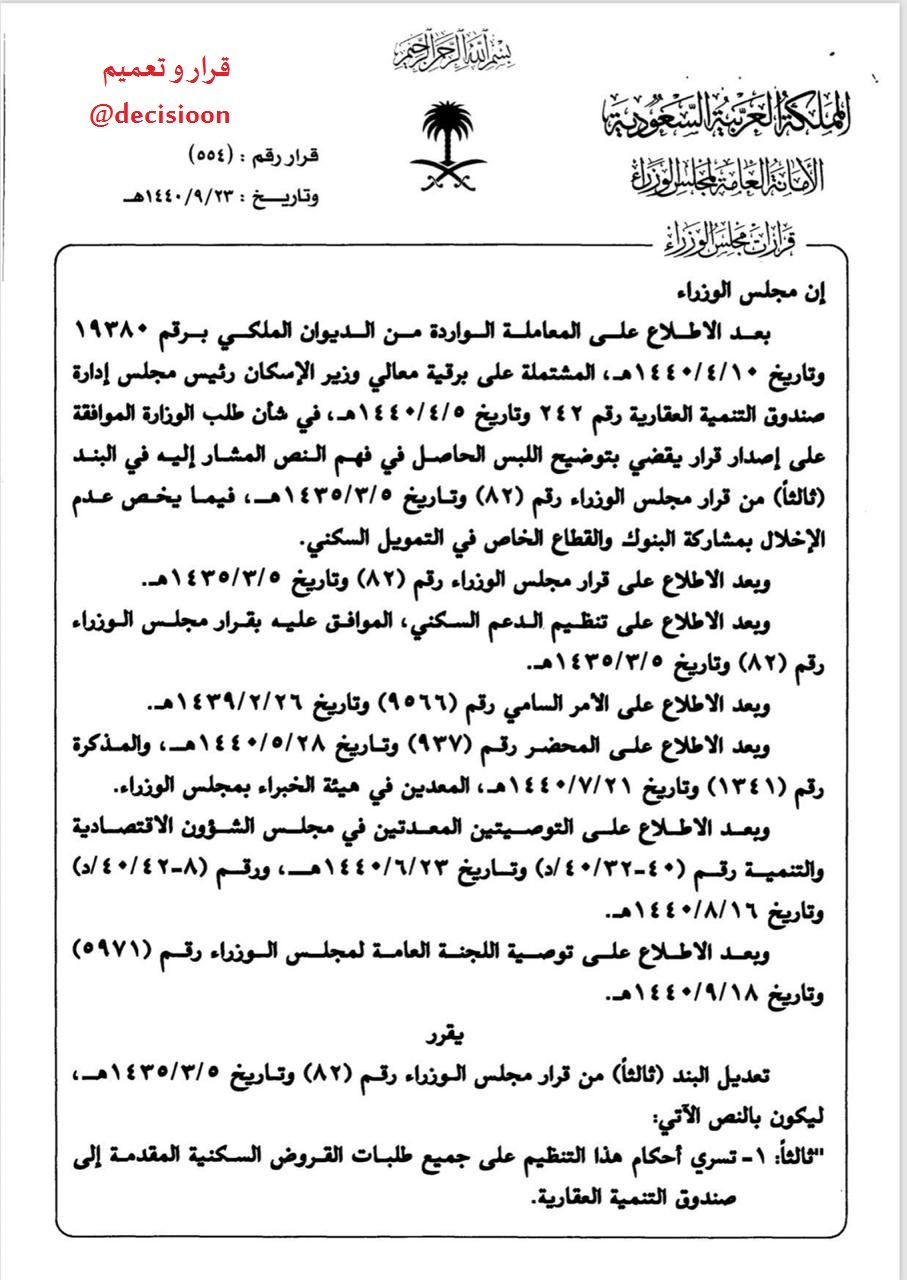 بسم الله الرحمن الرحيم
قرار و تعميم
@decisioon
المملكة العربية السعودية
الأمانة العامة لمجلس الوزراء
قرار رقم : (٥٥٤)
وتاريخ : ١٤٤٠/٩/٢٣هـ
قرارات مجلس الوزراء
إن مجلس الوزراء
بعد الاطلاع على المعاملة الواردة من الديوان الملكي برقم ١٩٣٨٠
وتاريخ ١٤٤٠/٤/١٠هـ، المشتملة على برقية معالي وزير الإسكان رئيس مجلس إدارة
صندوق التنمية العقارية رقم ٢٤٢ وتاريخ ١٤٤٠/٤/٥هـ، في شأن طلب الوزارة الموافقة
على إصدار قرار يقضي بتوضيح اللبس الحاصل في فهم النص المشار إليه في البند
(ثالثاً) من قرار مجلس الوزراء رقم (٨٢) وتاريخ ١٤٣٥/٣/٥هـ، فيما يخص عدم
الإخلال بمشاركة البنوك والقطاع الخاص في التمويل السكني.
وبعد الاطلاع على قرار مجلس الوزراء رقم (٨٢) وتاريخ ١٤٣٥/٣/٥هـ.
وبعد الاطلاع على تنظيم الدعم السكني، الموافق عليه بقرار مجلس الوزراء
رقم (٨٢) وتاريخ ١٤٣٥/٣/٥هـ.
وبعد الاطلاع على الأمر السامي رقم (٩٥٦٦) وتاريخ ١٤٣٩/٢/٢٦هـ.
وبعد الاطلاع على المحضر رقم (٩٣٧) وتاريخ ١٤٤٠/٥/٢٨هـ، والمذكرة
رقم (١٣٤١) وتاريخ ١٤٤٠/٧/٢١هـ، المعدين في هيئة الخبراء بمجلس الوزراء.
وبعد الاطلاع على التوصيتين المعدتين في مجلس الشؤون الاقتصادية
والتنمية رقم (٤٠-٤٠/٣٢/د) وتاريخ ١٤٤٠/٦/٢٣هـ، ورقم (٨-٤٠/٤٢/د)
وتاريخ ١٤٤٠/٨/١٦هـ.
وبعد الاطلاع على توصية اللجنة العامة لمجلس الوزراء رقم (٥٩٧١)
وتاريخ ١٤٤٠/٩/١٨هـ.
يقرر
تعديل البند (ثالثاً) من قرار مجلس الوزراء رقم (٨٢) وتاريخ ١٤٣٥/٣/٥هـ،
ليكون بالنص الآتي:
"ثالثاً: ١- تسري أحكام هذا التنظيم على جميع طلبات القروض السكنية المقدمة إلى
صندوق التنمية العقارية.